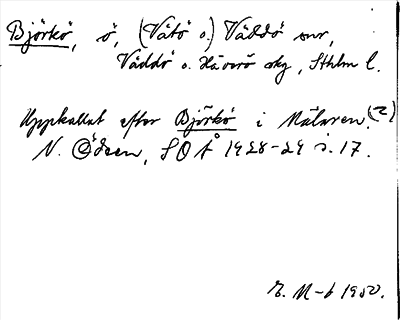 Björkö, ö, (Vätö o.) Väddö snr,
Väddö o. Häverö skg, Sthlm l.
Uppkallat efter Björkö i Mälaren.(?)
N. Ödeen, SOÅ 1928-29 s. 17.
M-b 1950.